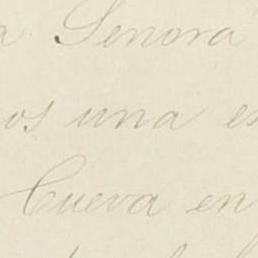 a Señora
os una es
Cueva en